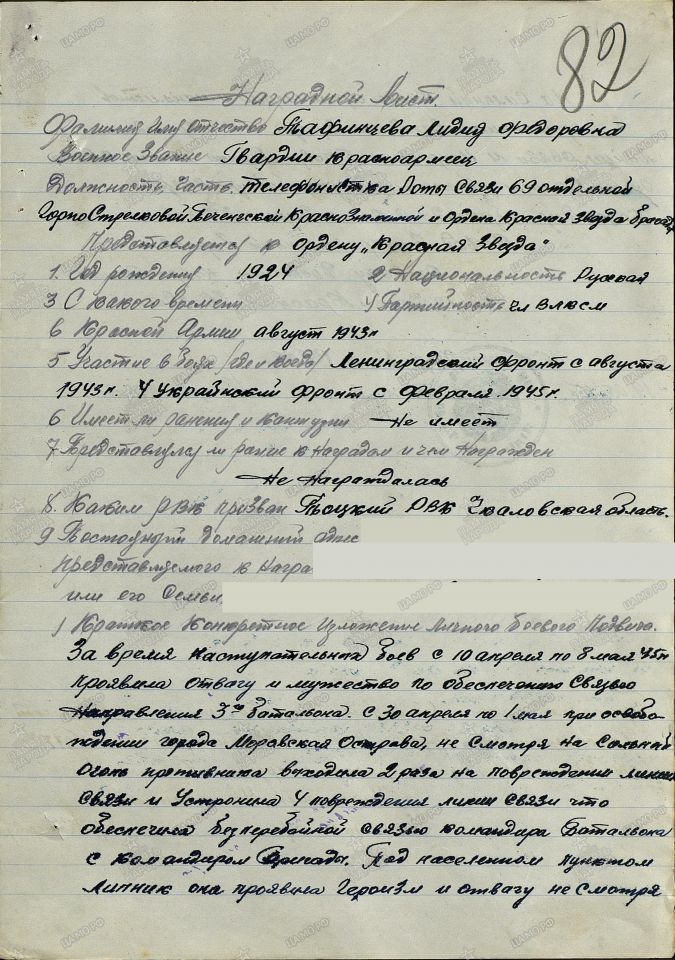 82
Наградной лист.
Фамилия Имя отчество Тафинцева Лидия Федоровна
Военное Звание Гвардии Красноармеец
Должность, часть. телефонистка Роты Связи 69 отдельной
Горно Стрелковой Печенгской Краснознаменной и Ордена Красной Звезда бригады
Представляется к ордену „Красная Звезда"
1. Год рождения 1924 2 Национальность Русская
3 С какого времени 4 Партийность чл ВЛКСМ
в Красной Армии август 1943 г
5 Участие в боях (где и когда) Ленинградский Фронт с августа
1943 г. 4 Украинский Фронт с февраля 1945 г.
6 Имеет ли ранения и контузии Не имеет
7 Представлялся ли ранее к Наградам и чем Награжден
Не Награждалась
8. Каким РВК призван Тоцкий РВК Чкаловская область.
9 Постоянный домашний адрес
представляемого к Награ
или его Семьи
1) Краткое Конкретное Изложение Личного боевого Подвига.
За время наступательных боев с 10 апреля по 8 мая 45 г
проявила отвагу и мужество по обеспечению Связью
Направления 3го батальона. С 30 апреля по 1 мая при освобо
ждении города Моравская Острава, не Смотря на Сильный
огонь противника выходила 2 раза на повреждении линии
Связи и Устронина 4 повреждения линии Связи что
обеспечила безперебойной связью командира Батальона
с командиром Бригады. Под населенном пунктом
Липник она проявила Героизм и отвагу не Смотря